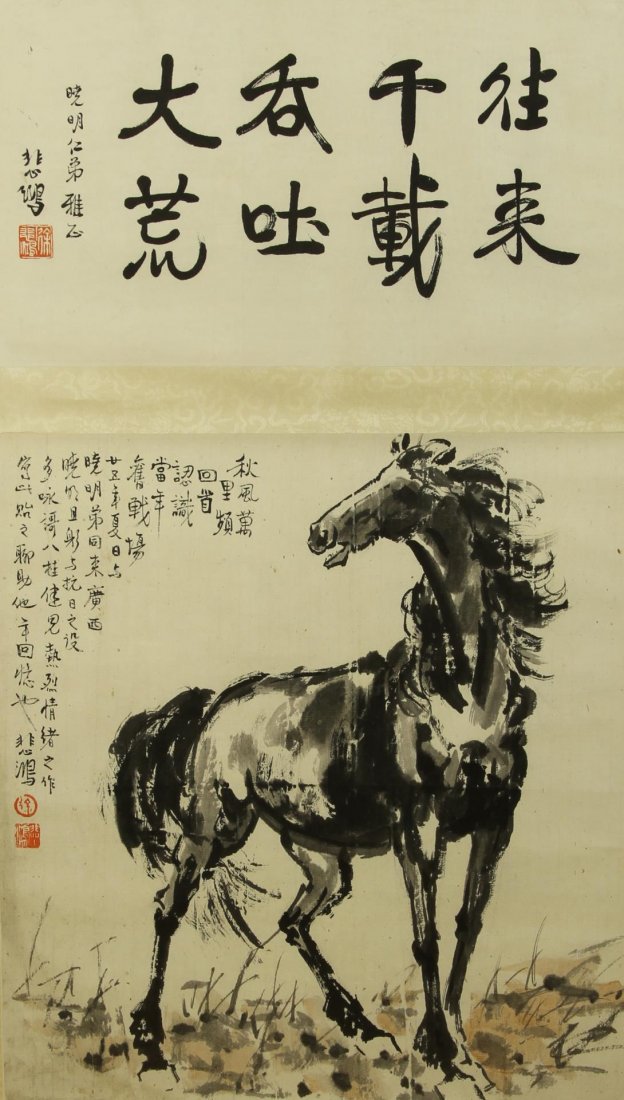 往来
千載
吞吐
大荒
曉明仁弟雅正
悲鴻
徐悲鴻
秋風萬
里頻
回首
認識
當年
舊戰場
廿五年夏日与
曉明弟同来廣西
曉明且与抗日之
多咏謌八桂健児熱烈情緒之作
寫此貽之聊助他年回憶也 悲鴻
徐
悲鴻